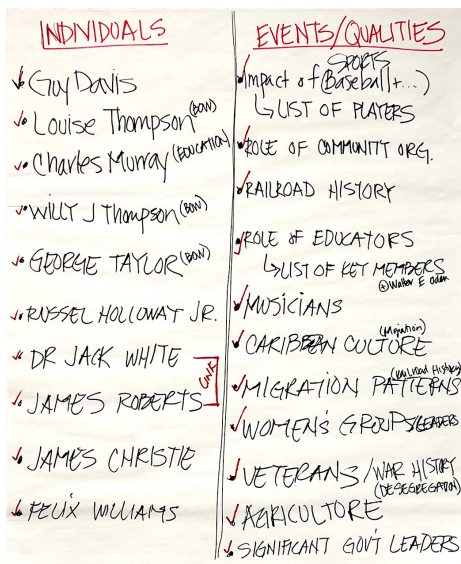 INDIVIDUALS
Guy Davis
Louise Thompson (BOW)
Charles Murray (EDUCATION)
WILLY J Thompson (BOW)
GEORGE TAYLOR (BOW)
RUSSEL HOLLOWAY JR.
DR JACK WHITE
LINK
JAMES ROBERTS
JAMES CHRISTIE
FELIX WILLIAMS
EVENTS/QUALITIES
SPORTS
Impact of (Baseball + ...)
LIST OF PLAYERS
ROLE OF COMMUNITY ORG.
RAILROAD HISTORY
ROLE of EDUCATORS
LIST OF KEY MEMBERS
Walter E
MUSICIANS
(Migration)
CARIBBEAN CULTURE
(Railroad History)
MIGRATION PATTERNS
WOMEN'S GROUPS/LEADERS
VETERANS/WAR HISTORY
(DESEGREGATION)
AGRICULTURE
SIGNIFICANT GOV'T LEADERS